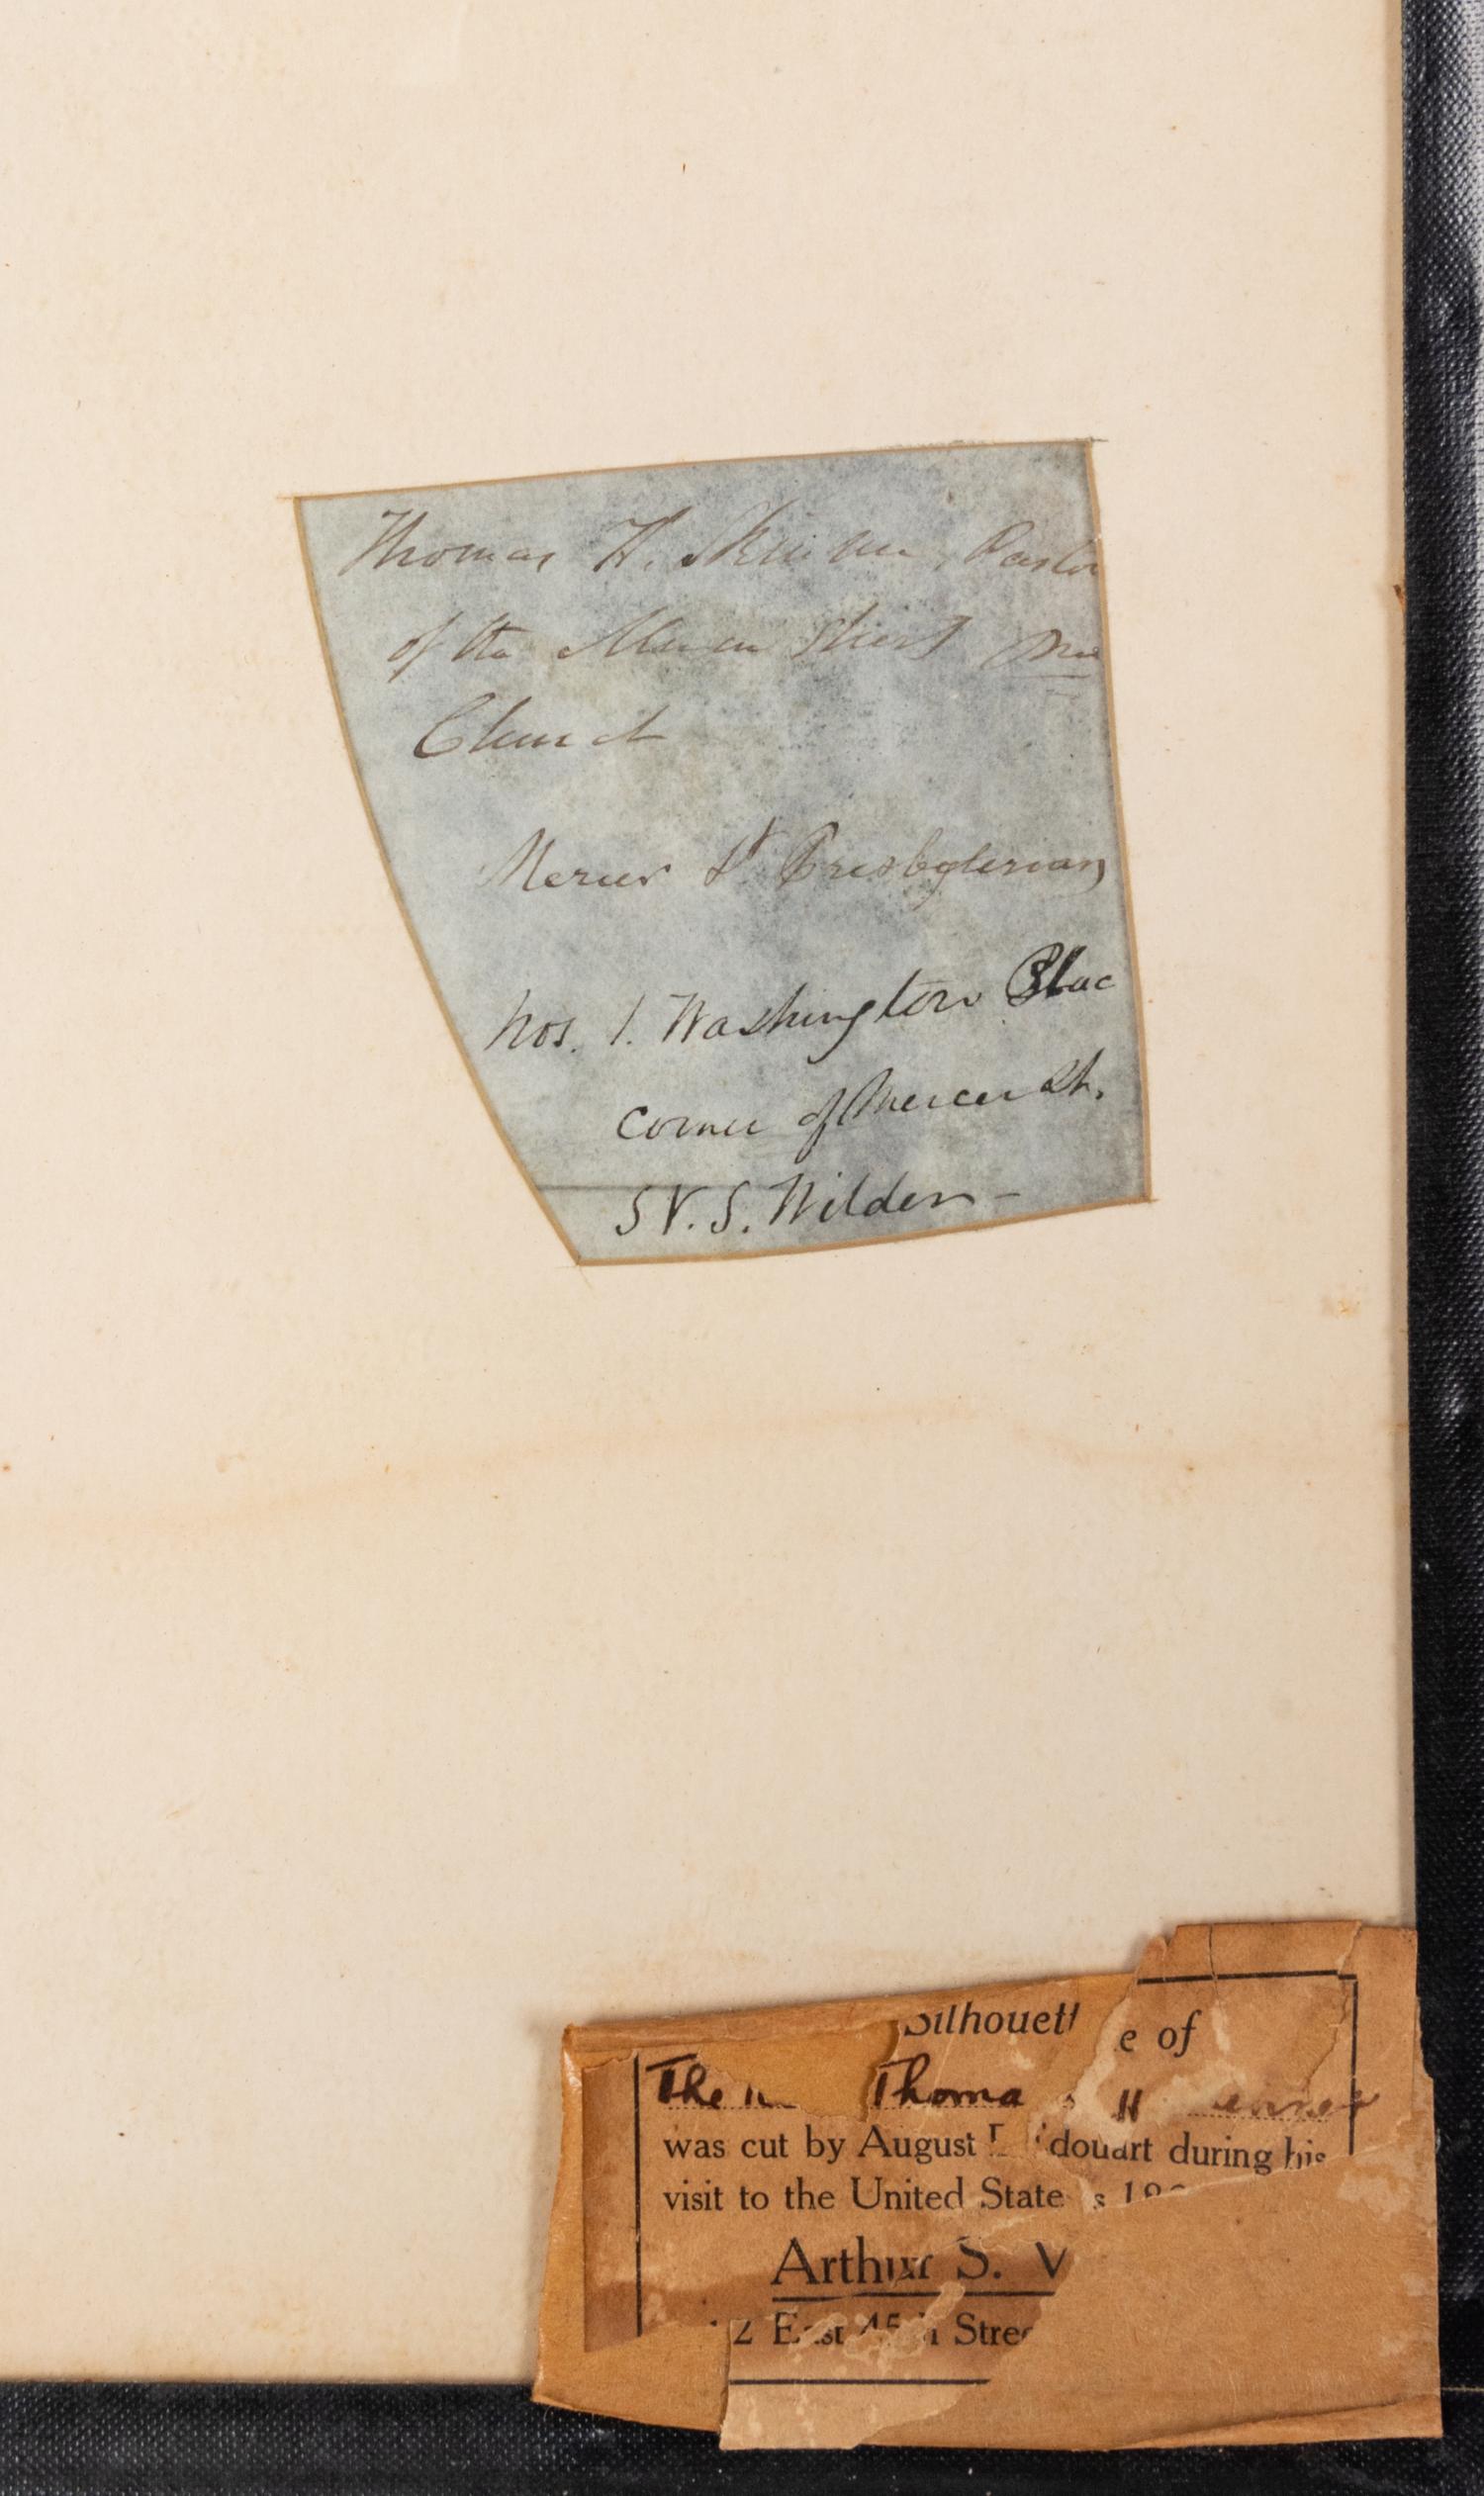 Thomas H. Skinner, Pastor
of the Mercer Street
Church
Mercer St Presbyterian
Nos. 1. Washington Plac
corner of Mercer St.
S V. S. Wilder —
Silhouette of
The Thomas H
was cut by August Edouart during his
visit to the United States
Arthur S. V
East 45th Stree